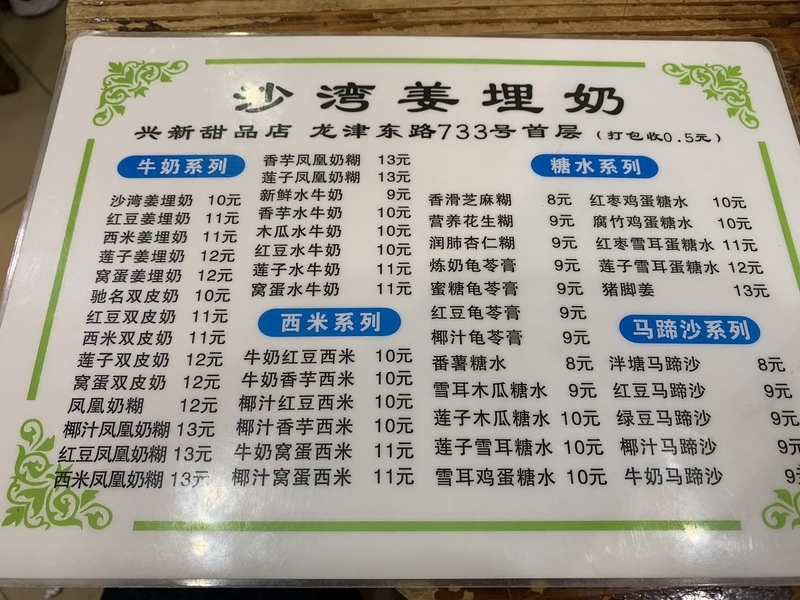 沙湾姜埋奶
兴新甜品店 龙津东路733号首层(打包收0.5元)
牛奶系列
沙湾姜埋奶 10元
红豆姜埋奶 11元
西米姜埋奶 11元
莲子姜埋奶 12元
窝蛋姜埋奶 12元
驰名双皮奶 10元
红豆双皮奶 11元
西米双皮奶 11元
莲子双皮奶 12元
窝蛋双皮奶 12元
凤凰奶糊 12元
椰汁凤凰奶糊 13元
红豆凤凰奶糊 13元
西米凤凰奶糊 13元
香芋凤凰奶糊 13元
莲子凤凰奶糊 13元
新鲜水牛奶 9元
香芋水牛奶 10元
木瓜水牛奶 10元
红豆水牛奶 10元
莲子水牛奶 11元
窝蛋水牛奶 11元
西米系列
牛奶红豆西米 10元
牛奶香芋西米 10元
椰汁红豆西米 10元
椰汁香芋西米 10元
牛奶窝蛋西米 11元
椰汁窝蛋西米 11元
糖水系列
香滑芝麻糊 8元
营养花生糊 9元
润肺杏仁糊 9元
炼奶龟苓膏 9元
蜜糖龟苓膏 9元
红豆龟苓膏 9元
椰汁龟苓膏 9元
番薯糖水 8元
雪耳木瓜糖水 9元
莲子木瓜糖水 10元
莲子雪耳糖水 10元
雪耳鸡蛋糖水 10元
红枣鸡蛋糖水 10元
腐竹鸡蛋糖水 10元
红枣雪耳蛋糖水 11元
莲子雪耳蛋糖水 12元
猪脚姜 13元
马蹄沙系列
泮塘马蹄沙 8元
红豆马蹄沙 9元
绿豆马蹄沙 9元
椰汁马蹄沙 9元
牛奶马蹄沙 9元